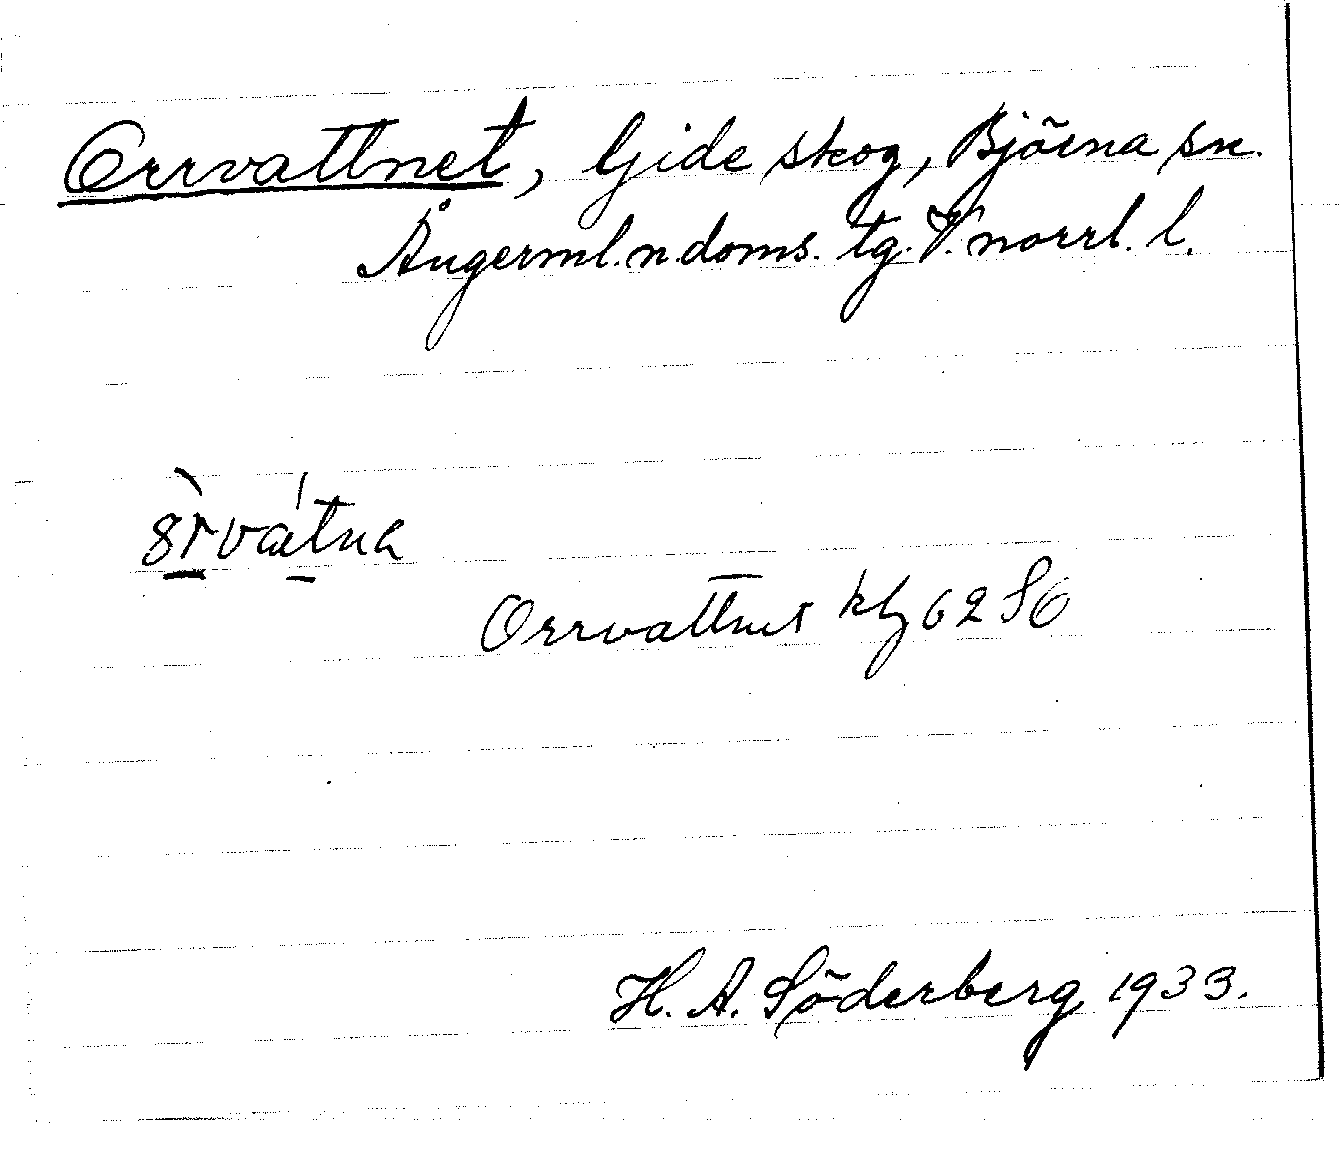 Orrvattnet, Gide skog, Björna sn.
Ångerml.n.doms. tg. V. norrl. l.
Orrvattnet
H. A. Söderberg 1933.